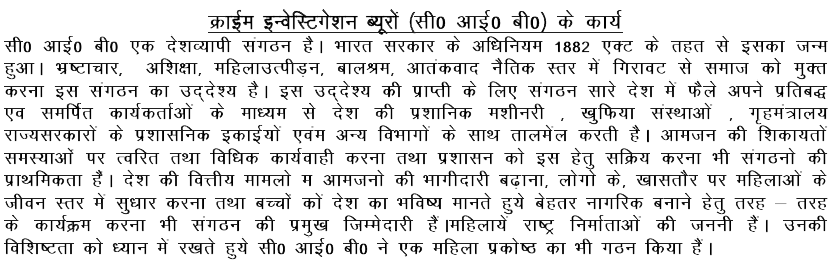 क्राईम इन्वेस्टिगेशन ब्यूरों (सी0 आई0 बी0) के कार्य
सी0 आई0 बी0 एक देशव्यापी संगठन है। भारत सरकार के अधिनियम 1882 एक्ट के तहत से इसका जन्म
हुआ। भ्रष्टाचार, अशिक्षा, महिलाउत्पीड़न, बालश्रम, आतंकवाद नैतिक स्तर में गिरावट से समाज को मुक्त
करना इस संगठन का उद्देश्य है। इस उद्देश्य की प्राप्ती के लिए संगठन सारे देश में फैले अपने प्रतिबद्ध
एव समर्पित कार्यकर्ताओं के माध्यम से देश की प्रशानिक मशीनरी , खुफिया संस्थाओं , गृहमंत्रालय
राज्यसरकारों के प्रशासनिक इकाईयों एवंम अन्य विभागों के साथ तालमेंल करती है। आमजन की शिकायतों
समस्याओं पर त्वरित तथा विधिक कार्यवाही करना तथा प्रशासन को इस हेतु सक्रिय करना भी संगठनो की
प्राथमिकता हैं। देश की वित्तीय मामलो म आमजनो की भागीदारी बढ़ाना, लोगो के, खासतौर पर महिलाओं के
जीवन स्तर में सुधार करना तथा बच्चों कों देश का भविष्य मानते हुये बेहतर नागरिक बनाने हेतु तरह – तरह
के कार्यक्रम करना भी संगठन की प्रमुख जिम्मेदारी हैं।महिलायें राष्ट्र निर्माताओं की जननी हैं। उनकी
विशिष्टता को ध्यान में रखते हुये सी0 आई0 बी0 ने एक महिला प्रकोष्ठ का भी गठन किया हैं।